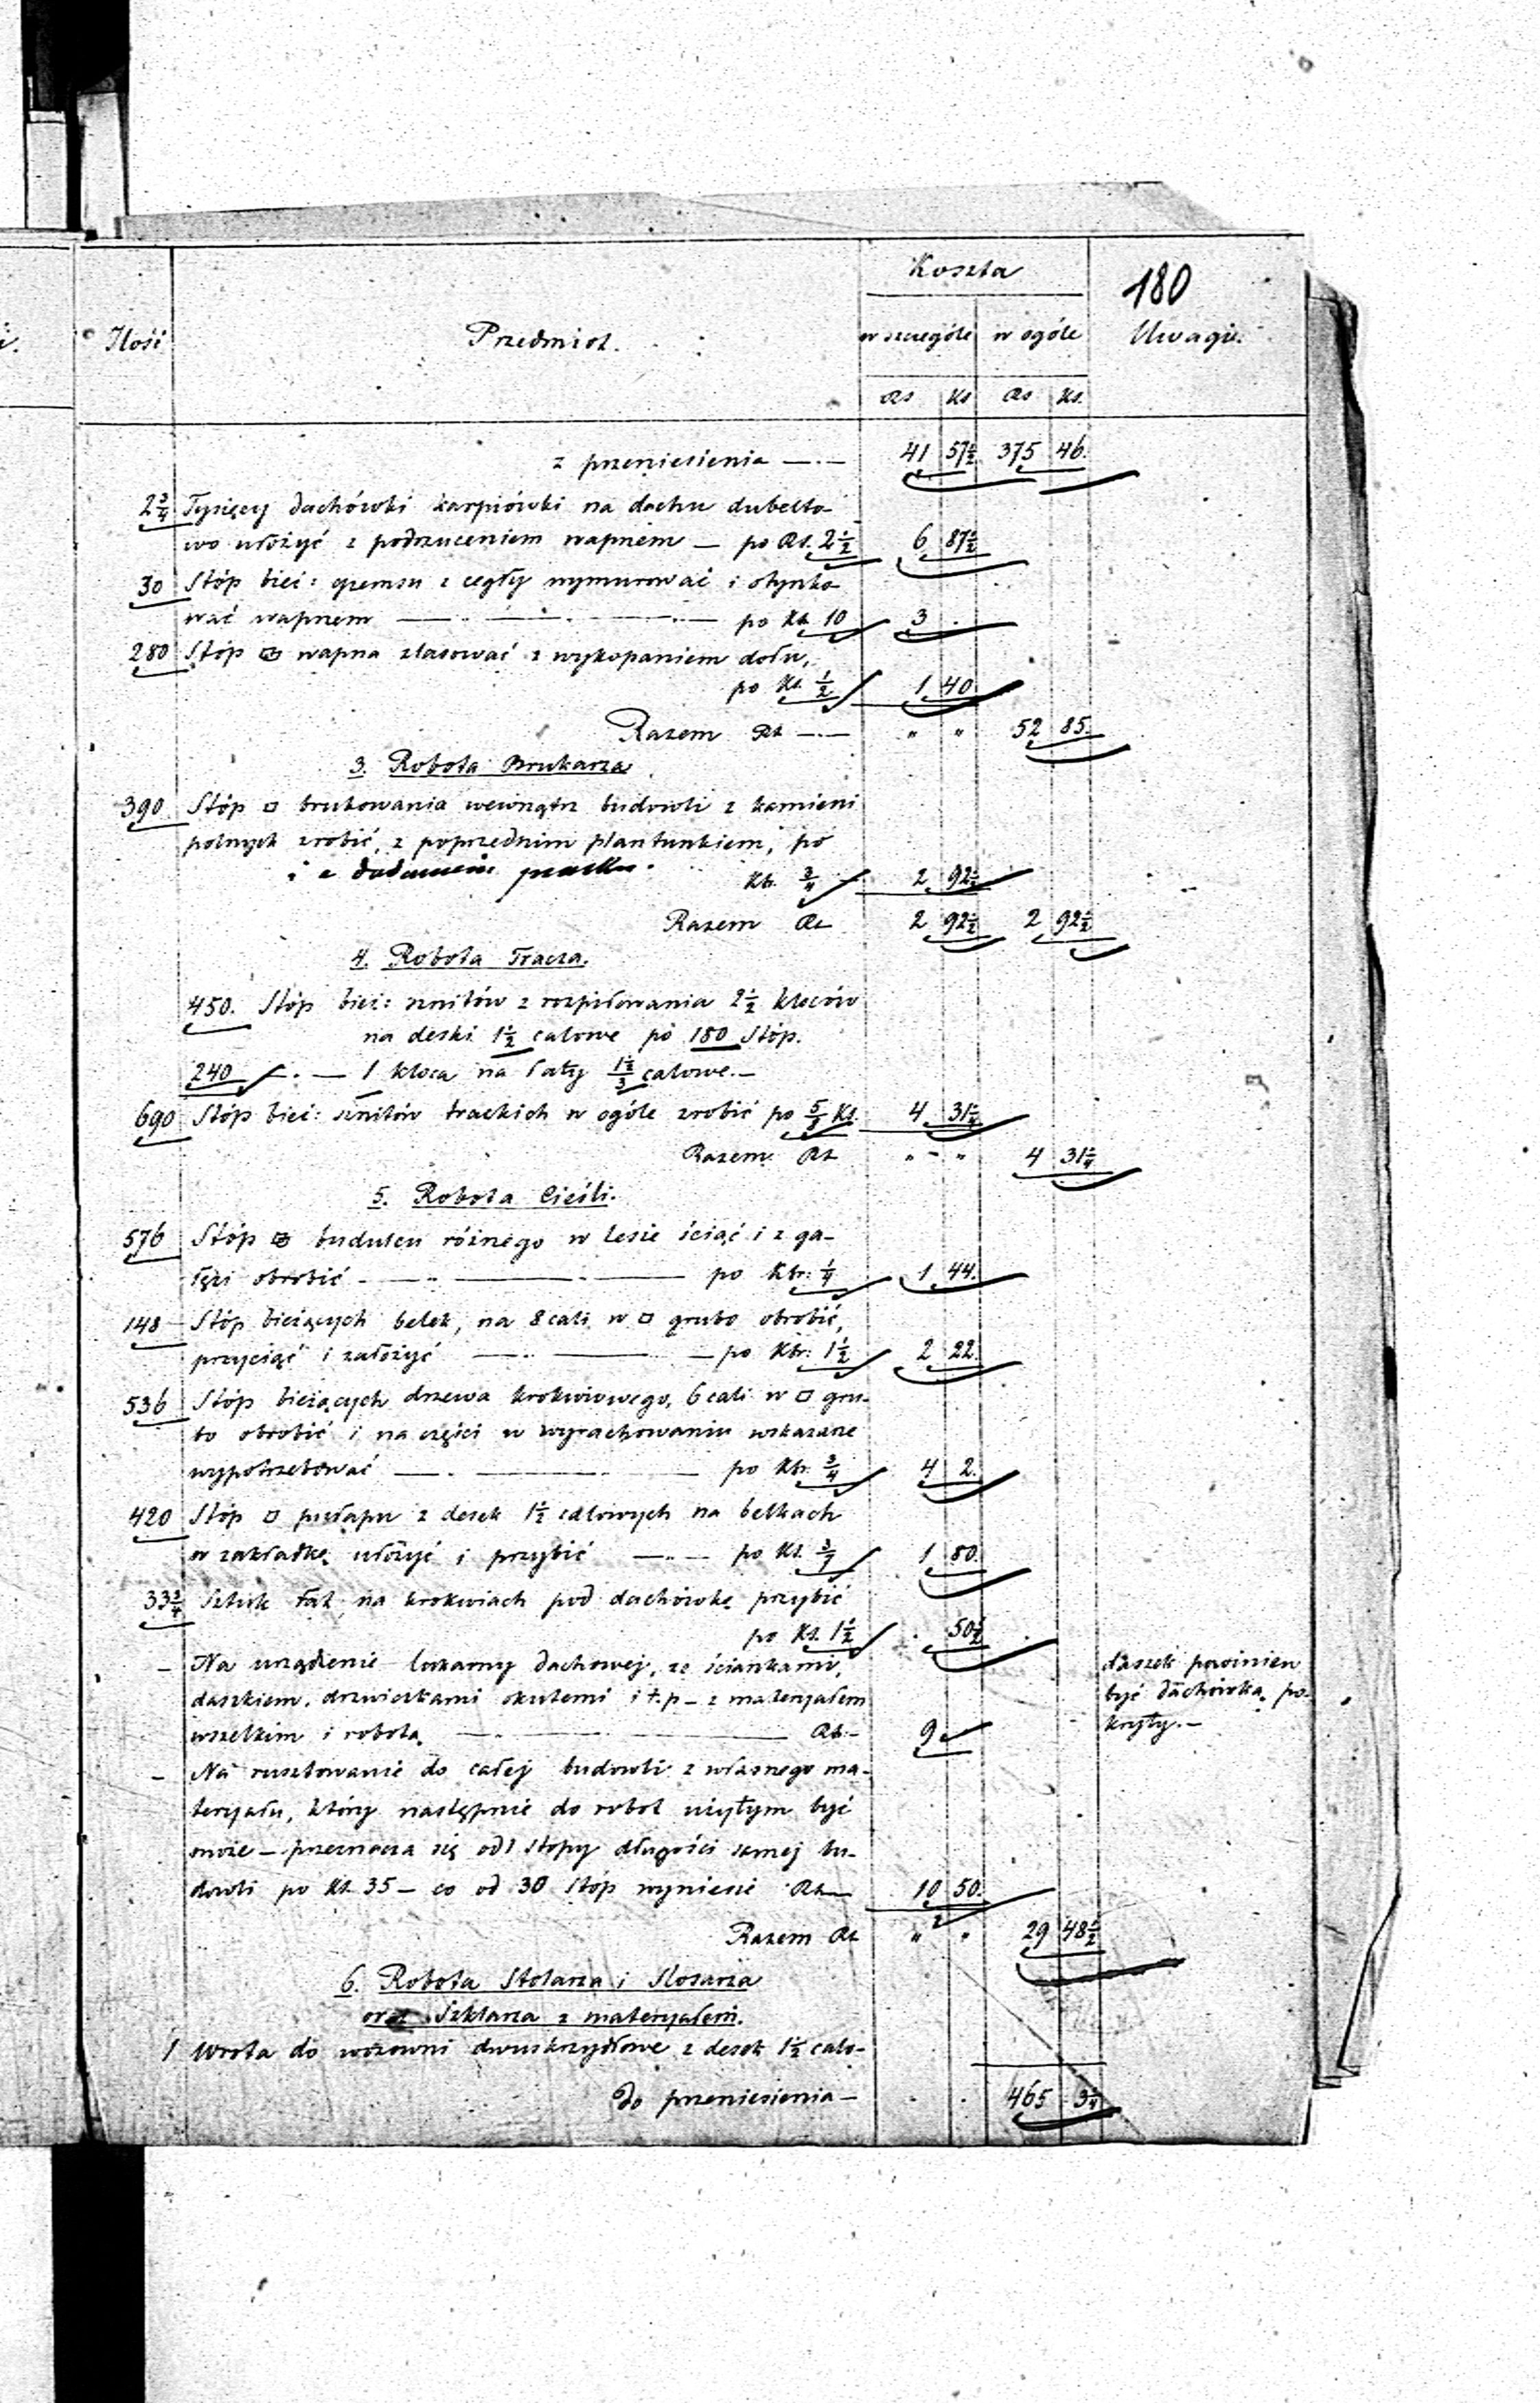 Koszta
180
Ilość Przedmiot. w szczególe w ogóle Uwagi.
Rs Ks Rs Ks.
z przeniesienia —·— 41 57½ 375 46.
2¾ Tysięcy dachówki karpiówki na dachu dubelto-
wo ułożyć z podrzuceniem wapnem — po Rs. 2½ 6 87½
30 Stóp bież: gzemsu z cegły wymurować i otynko-
wać wapnem — po Ks. 10 3 .
280 Stóp wapna zlasować z wykopaniem dołu,
po Ks. ½ 1 40
Razem Rs —·— " " 52 85.
3. Robota Brukarza
390 Stóp □ brukowania wewnątrz budowli z kamieni
polnych zrobić, z poprzednim plantunkiem, po
i z dodaniem piasku.
Kb. ¾ 2 92½
Razem Rs 2 92½ 2 92½
4. Robota Tracza.
450. Stóp bież: sznitów z rozpiłowania 2½ kloców
na deski 1½ calowe po 180 Stóp.
240 —·— 1 kloca na łaty 1½/3 calowe.—
690 Stóp bież: sznitów trackich w ogóle zrobić po ⅝ Ks. 4 31¼
Razem Rs " - " 4 31¼
5. Robota Cieśli.
576 Stóp budulcu różnego w lesie ściąć i z ga-
łęzi obrobić — po Kbr: ¼ 1 44.
148 Stóp bieżących belek, na 8 cali w □ grubo obrobić,
przyciąć i założyć — po Kbr: 1½ 2 22.
536 Stóp bieżących drzewa krokwiowego, 6 cali w □ gru-
bo obrobić i na części w wyrachowaniu wskazane
wypotrzebować — po Kbr. ¾ 4 2.
420 Stóp □ pułapu z desek 1½ calowych na belkach
w zakładkę ułożyć i przybić —·— po Ks. 3/7 1 80.
33¾ Sztuk łat na krokwiach pod dachówkę przybić
po Ks. 1½ . 50½
– Na urządzenie lukarny dachowej, ze ściankami,
daszkiem, drzwiczkami okutemi i t.p – z materyałem
wszelkim i robotą — Rs.– 9
Daszek powinien
być dachówką po-
kryty.–
– Na rusztowanie do całej budowli z własnego ma-
teryału, który następnie do robot użytym być
może – przeznacza się od 1 stopy długości samej bu-
dowli po Ks. 35 – co od 30 Stóp wyniesie Rs— 10 50.
Razem Rs " " 29 48½
6. Robota Stolarza i Slosarza
oraz Szklarza z materyałem.
1 Wrota do wozowni dwuskrzydłowe z desek 1½ calo-
do przeniesienia – . . 465 3¾